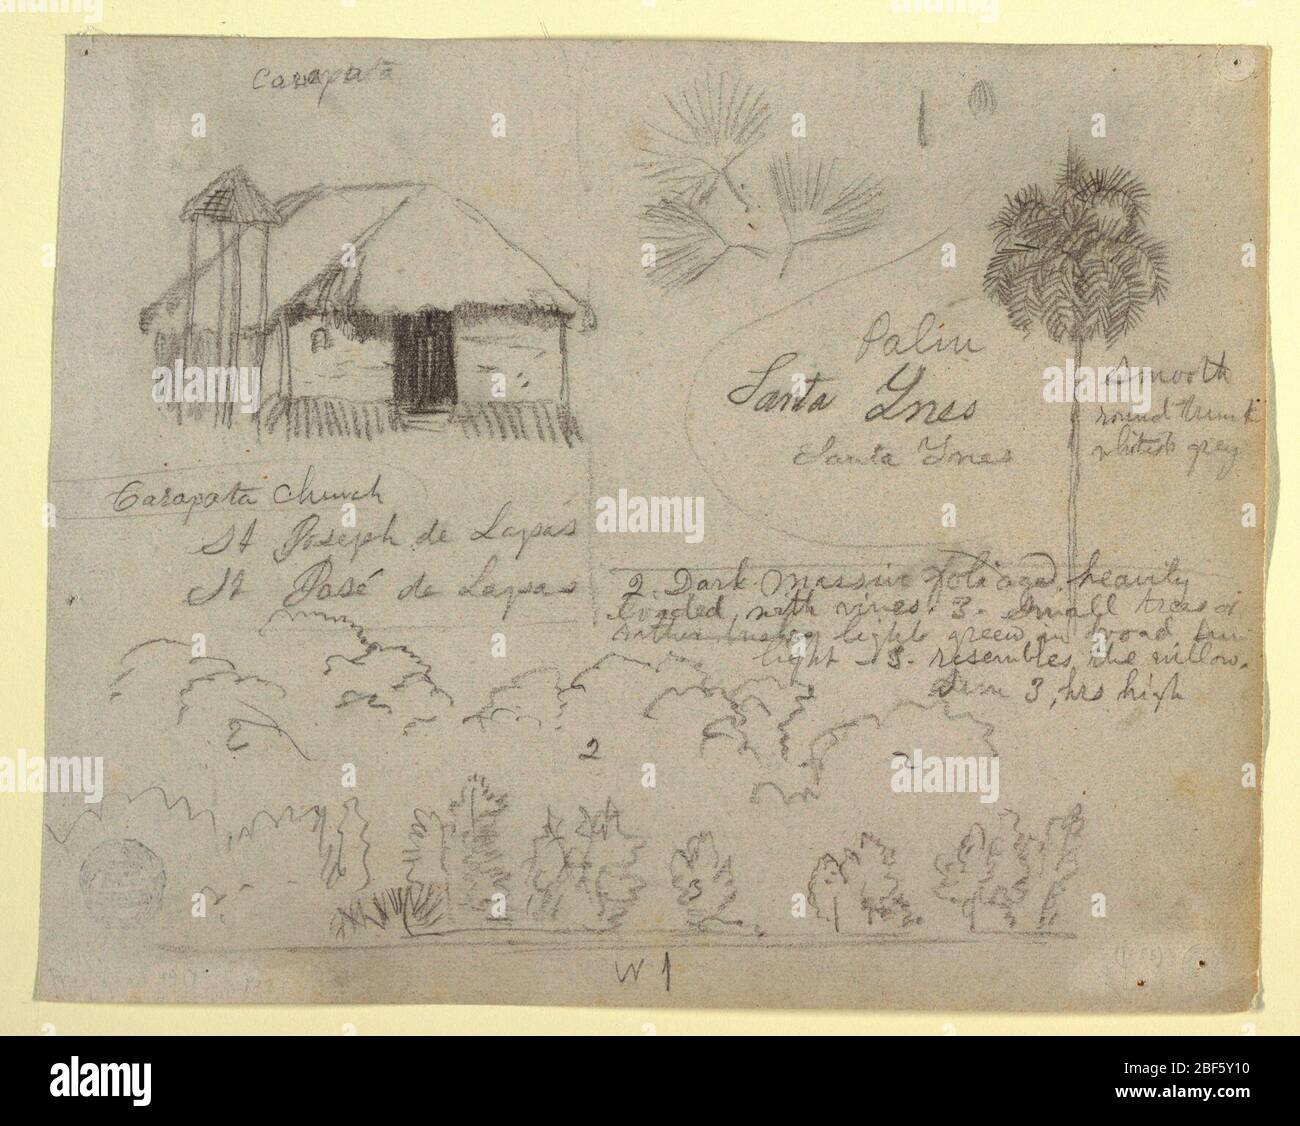 Carapata
Palm
Santa Ynes
Santa Ynes
Smooth
round trunk
whitish grey
Carapata Church
St Joseph de Lapas
St José de Lapas
2. Dark massive foliage heavily
loaded with vines. 3. Small trees or
rather bushes light green in broad sun
light - 3. resembles the willow.
Sun 3 hrs high
2
2
3
W 1
alamy
Image ID: 2BF5Y10
www.alamy.com